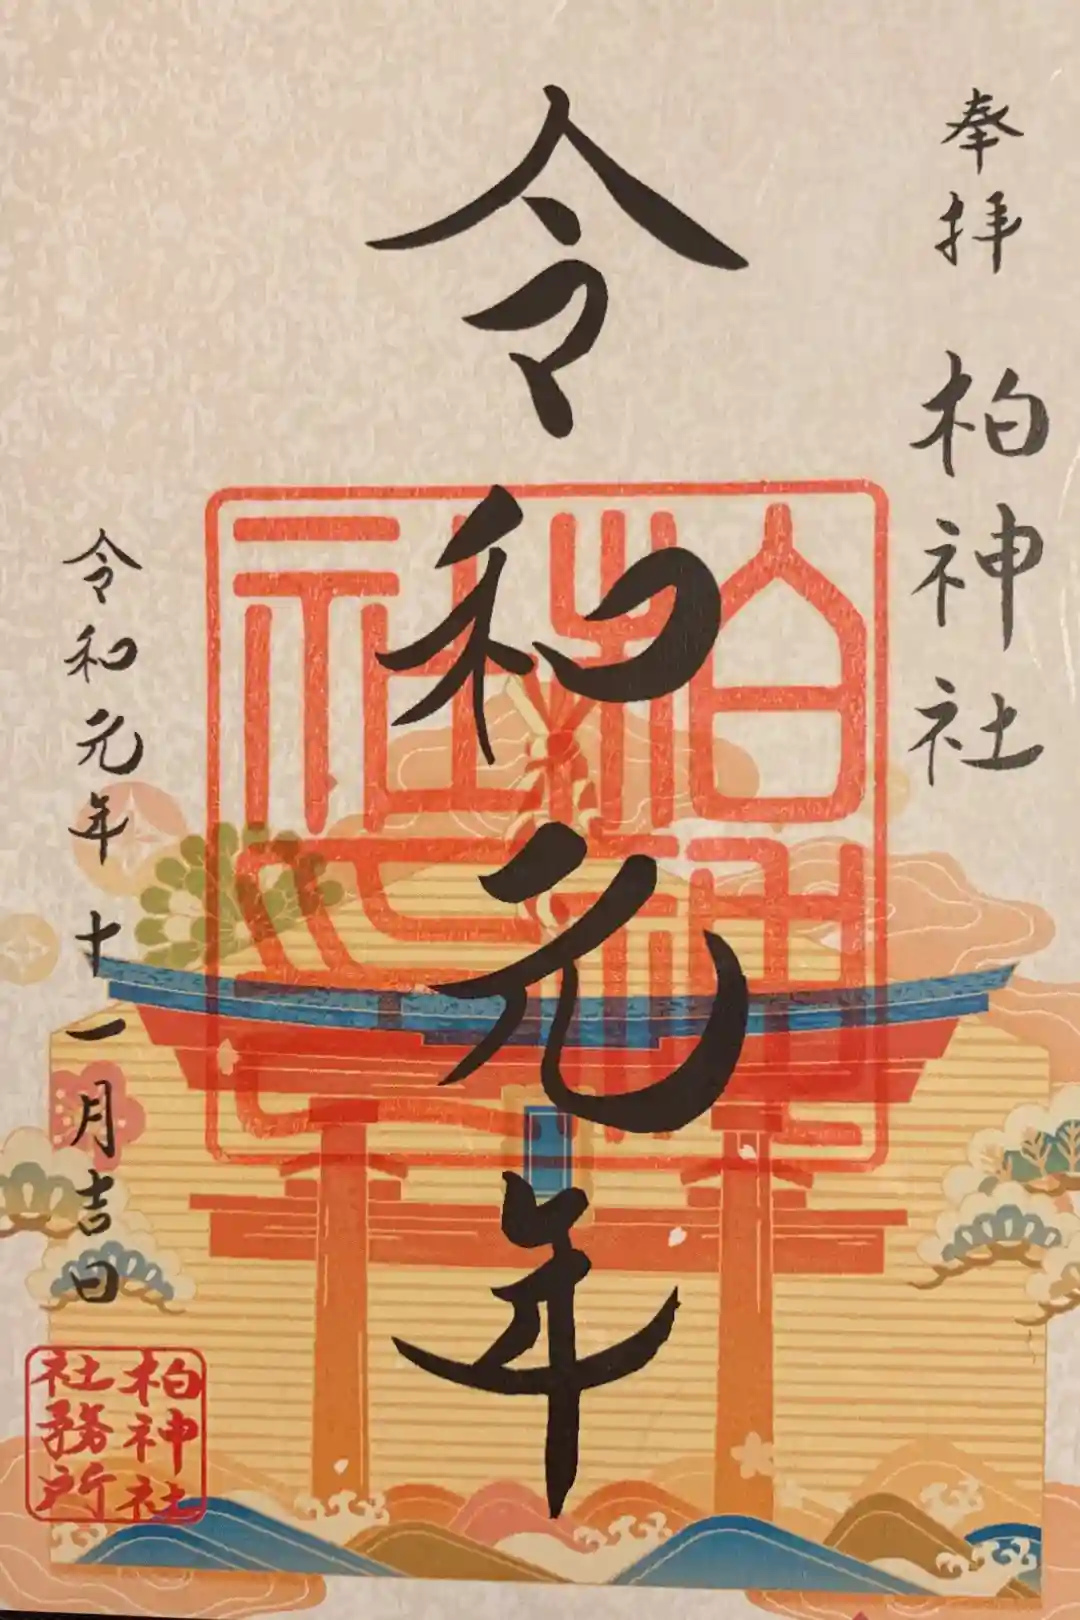 奉拝 柏神社
令和元年
令和元年十一月吉日
柏神社
社務所
柏神社之印